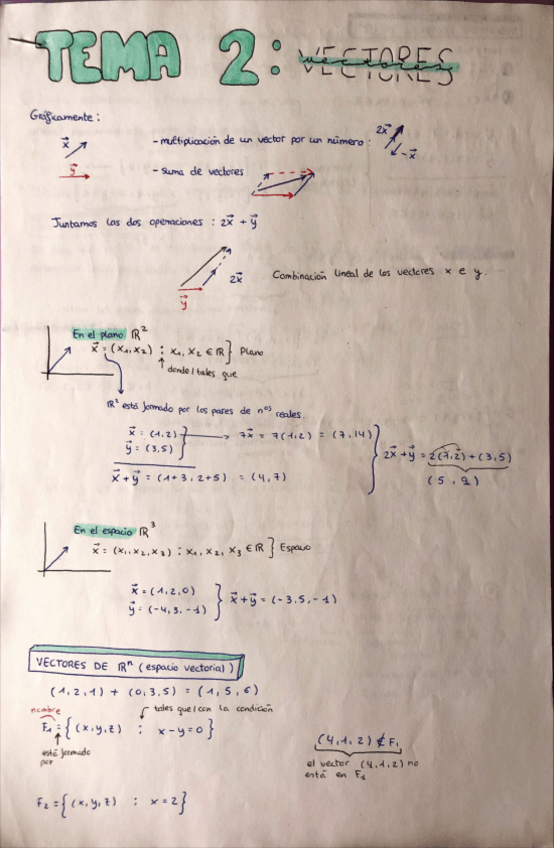 TEMA 2: VECTORES
vectores
Gráficamente:
x⃗ - multiplicación de un vector por un número: 2x⃗ -x⃗
y⃗ - suma de vectores
Juntamos las dos operaciones : 2x⃗ + y⃗
2x⃗ Combinación lineal de los vectores x e y.
y⃗
En el plano ℝ²
x⃗ = (x₁, x₂) : x₁, x₂ ∈ ℝ } Plano
donde / tales que
ℝ² está formado por los pares de nºs reales.
x⃗ = (1,2) → 7x⃗ = 7(1,2) = (7,14)
y⃗ = (3,5)
2x⃗+y⃗ = 2(1,2) + (3,5)
x⃗+y⃗ = (1+3, 2+5) = (4,7)
(5, 9)
En el espacio ℝ³
x⃗ = (x₁, x₂, x₃) : x₁, x₂, x₃ ∈ ℝ } Espacio
x⃗ = (1,2,0)
y⃗ = (-4,3,-1) } x⃗+y⃗ = (-3,5,-1)
VECTORES DE ℝⁿ (espacio vectorial)
(1,2,1) + (0,3,5) = (1,5,6)
nombre tales que / con la condición
F₁ = { (x,y,z) : x-y=0 }
está formado
por
(4,1,2) ∉ F₁
el vector (4,1,2) no
está en F₁
F₂ = { (x,y,z) : x=2 }